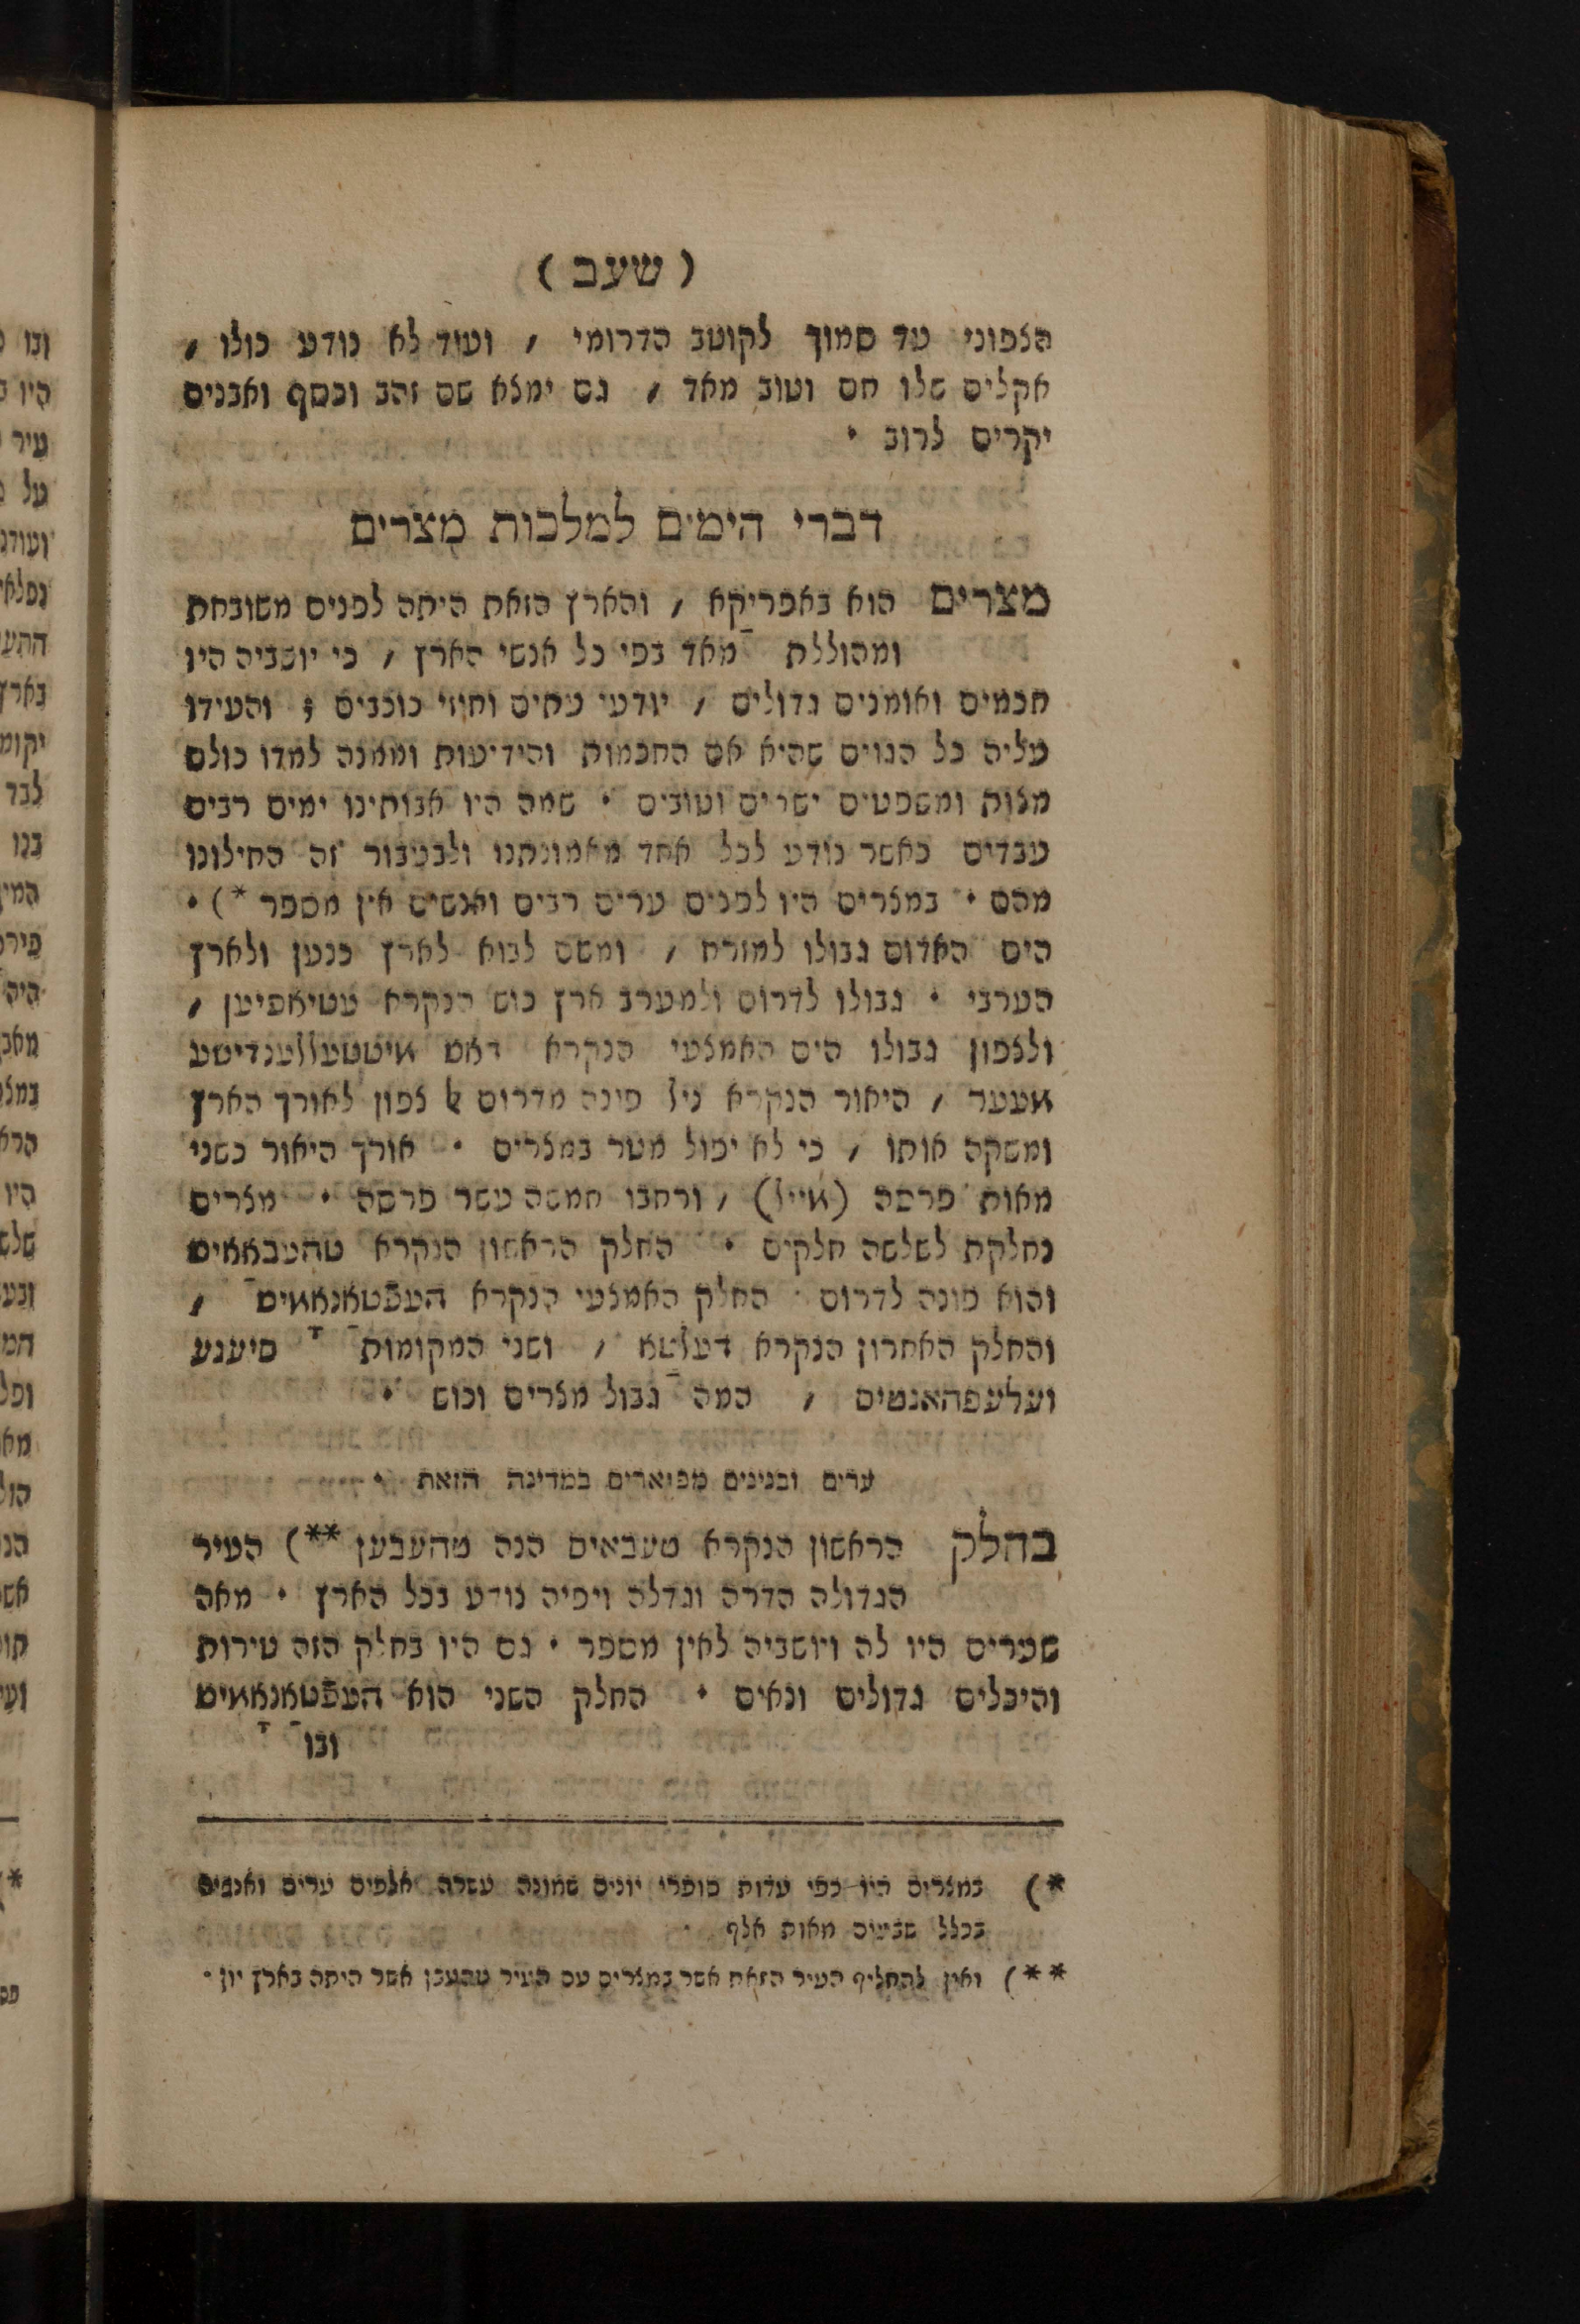 ( שעב )
הצפוני עד סמוך לקוטב הדרומי , ועוד לא נודע כולו ,
אקלים שלו חם וטוב מאד , גם ימצא שם זהב וכסף ואבנים
יקרים לרוב •
דברי הימים למלכות מצרים
מצרים הוא באפריקא , והארץ הזאת היתה לפנים משובחת
ומהוללת מאד בפי כל אנשי הארץ , כי יושביה היו
חכמים ואומנים גדולים , יודעי עתים וחוזי כוכבים ; והעידו
עליה כל הגוים שהיא אם החכמות והידיעות וממנה למדו כולם
מצות ומשפטים ישרים וטובים • שמה היו אבותינו ימים רבים
עבדים כאשר נודע לכל אחד מאמונתנו ולבעבור זה החילונו
מהם • במצרים היו לפנים ערים רבים ואנשים אין מספר *) •
הים האדום גבולו למזרח , ומשם לבוא לארץ כנען ולארץ
הערבי • גבולו לדרום ולמערב ארץ כוש הנקרא עטיאפיען ,
ולצפון גבולו הים האמצעי הנקרא דאס מיטטעללענדישע
מעער , היאור הנקרא ניל פינה מדרום לצפון לאורך הארץ
ומשקה אותו , כי לא יפול מטר במצרים • אורך היאור כשני
מאות פרסה (מייל) , ורחבו חמשה עשר פרסה • מצרים
נחלקת לשלשה חלקים • החלק הראשון הנקרא טהעבאאיס
והוא פונה לדרום • החלק האמצעי הנקרא העפטאנאמיס ,
והחלק האחרון הנקרא דעלטא , ושני המקומות סיענע
ועלעפהאנטיס , המה גבול מצרים וכוש •
ערים ובנינים מפוארים במדינה הזאת •
בחלק הראשון הנקרא טעבאיס הנה טהעבען **) העיר
הגדולה הדרה וגדלה ויפיה נודע בכל הארץ • מאה
שערים היו לה ויושביה לאין מספר • גם היו בחלק הזה טירות
והיכלים גדולים ונאים • החלק השני הוא העפטאנאמיס
ובו
*) במצרים היו כפי עדות סופרי יונים שמונה עשרה אלפים ערים ואנשים
בכלל שבעים מאות אלף •
**) ואין להחליף העיר הזאת אשר במצרים עם העיר טהעבן אשר היתה בארץ יון •